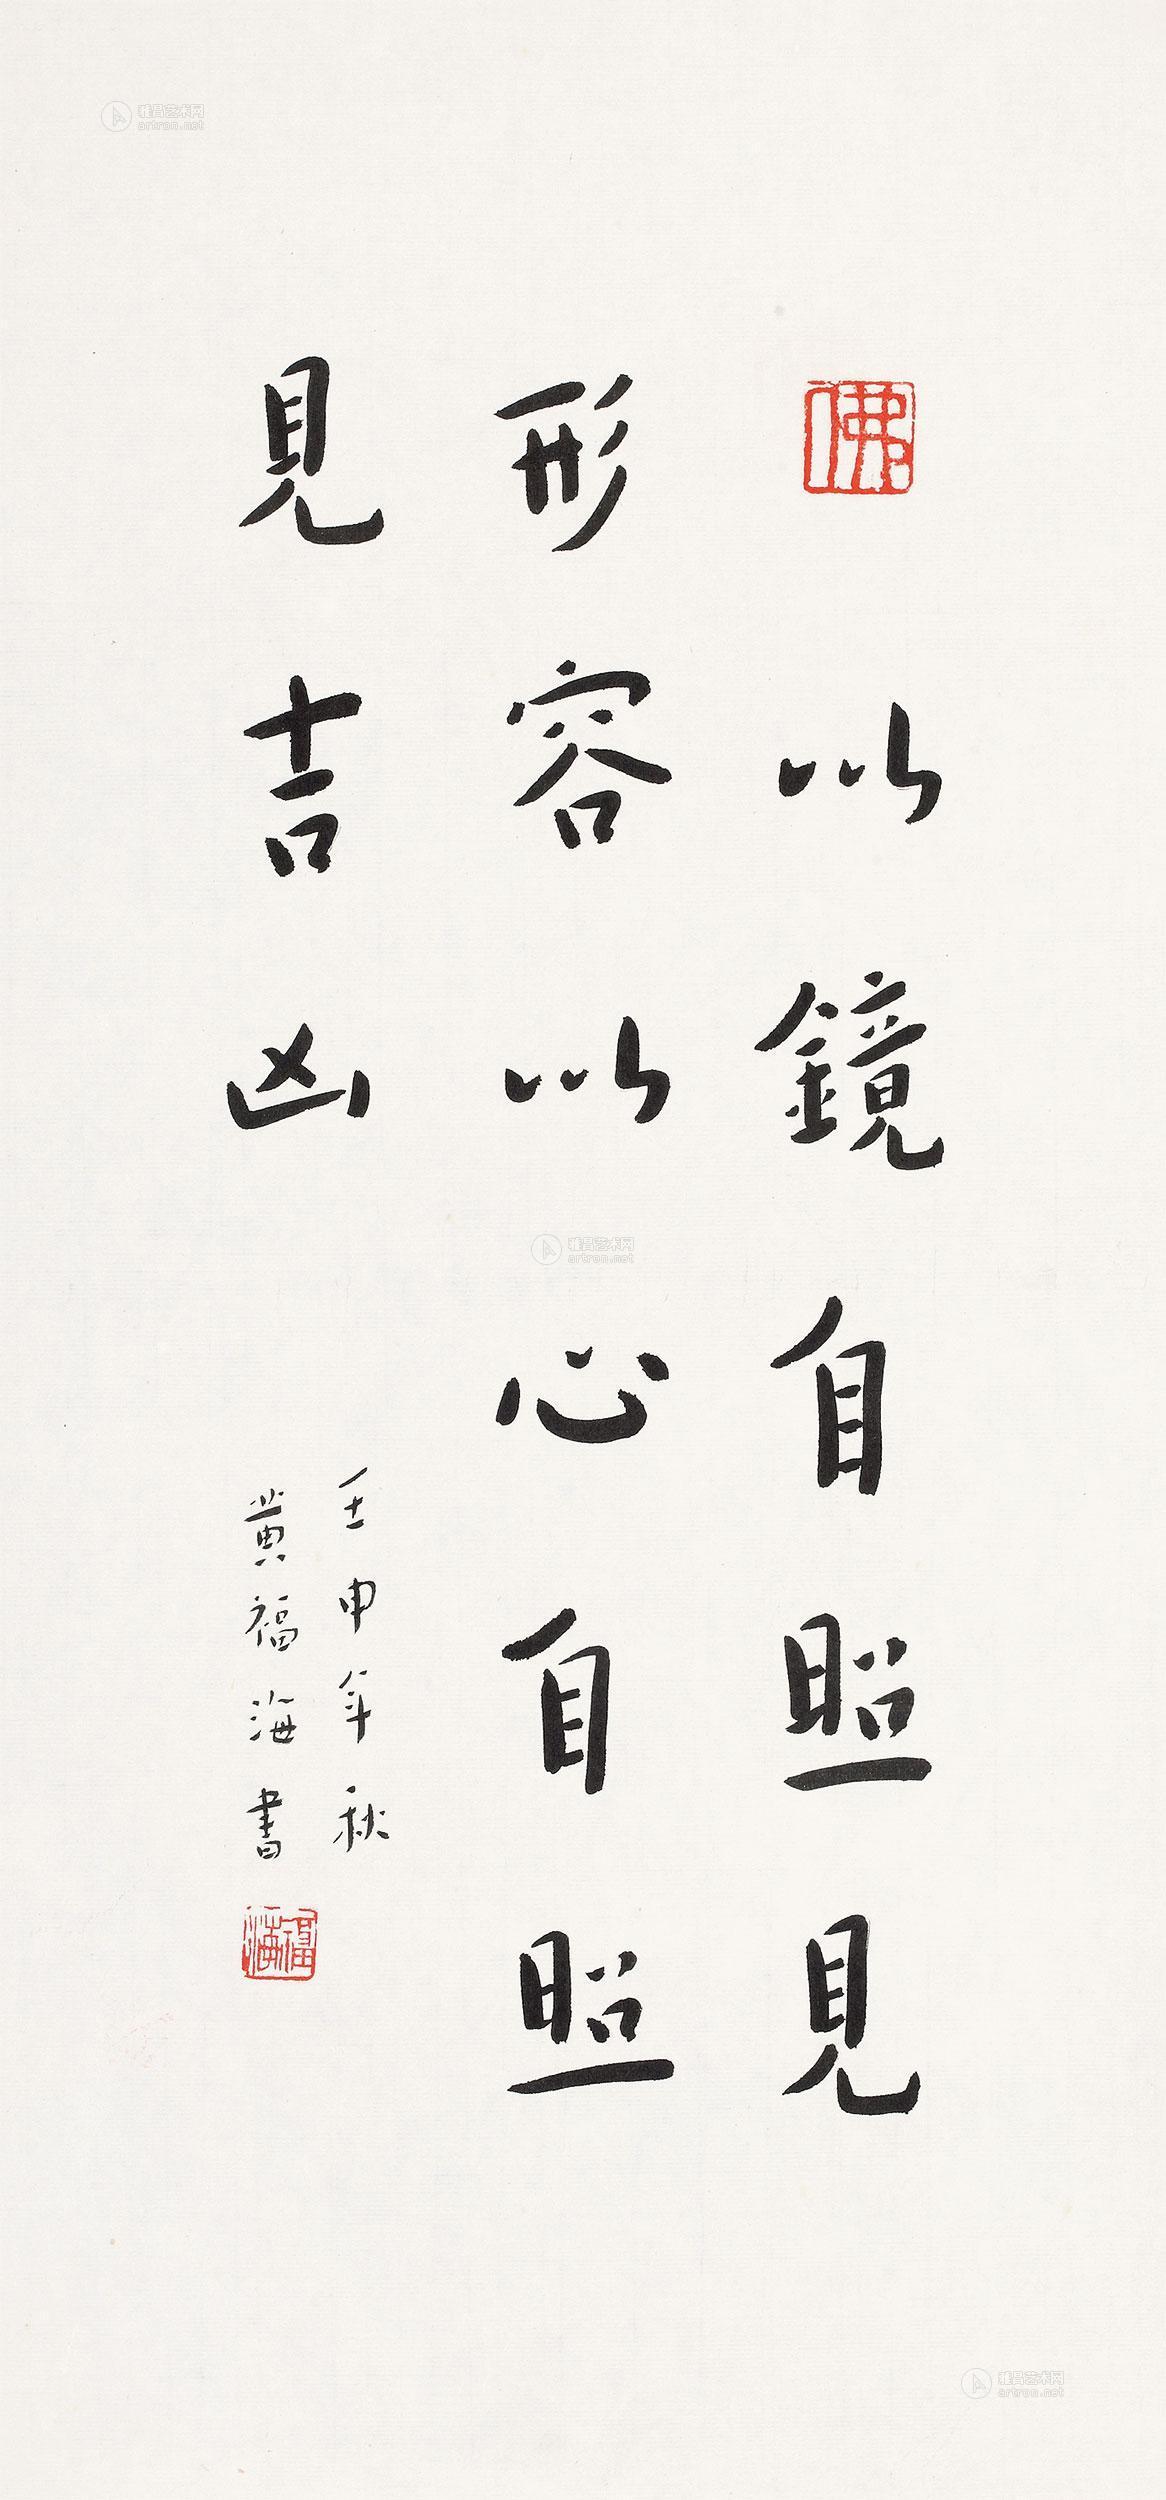 佛
以鏡自照見
形容以心自照
見吉凶
壬申年秋
黄福海書
福海
雅昌艺术网
artron.net
雅昌艺术网
artron.net
雅昌艺术网
artron.net